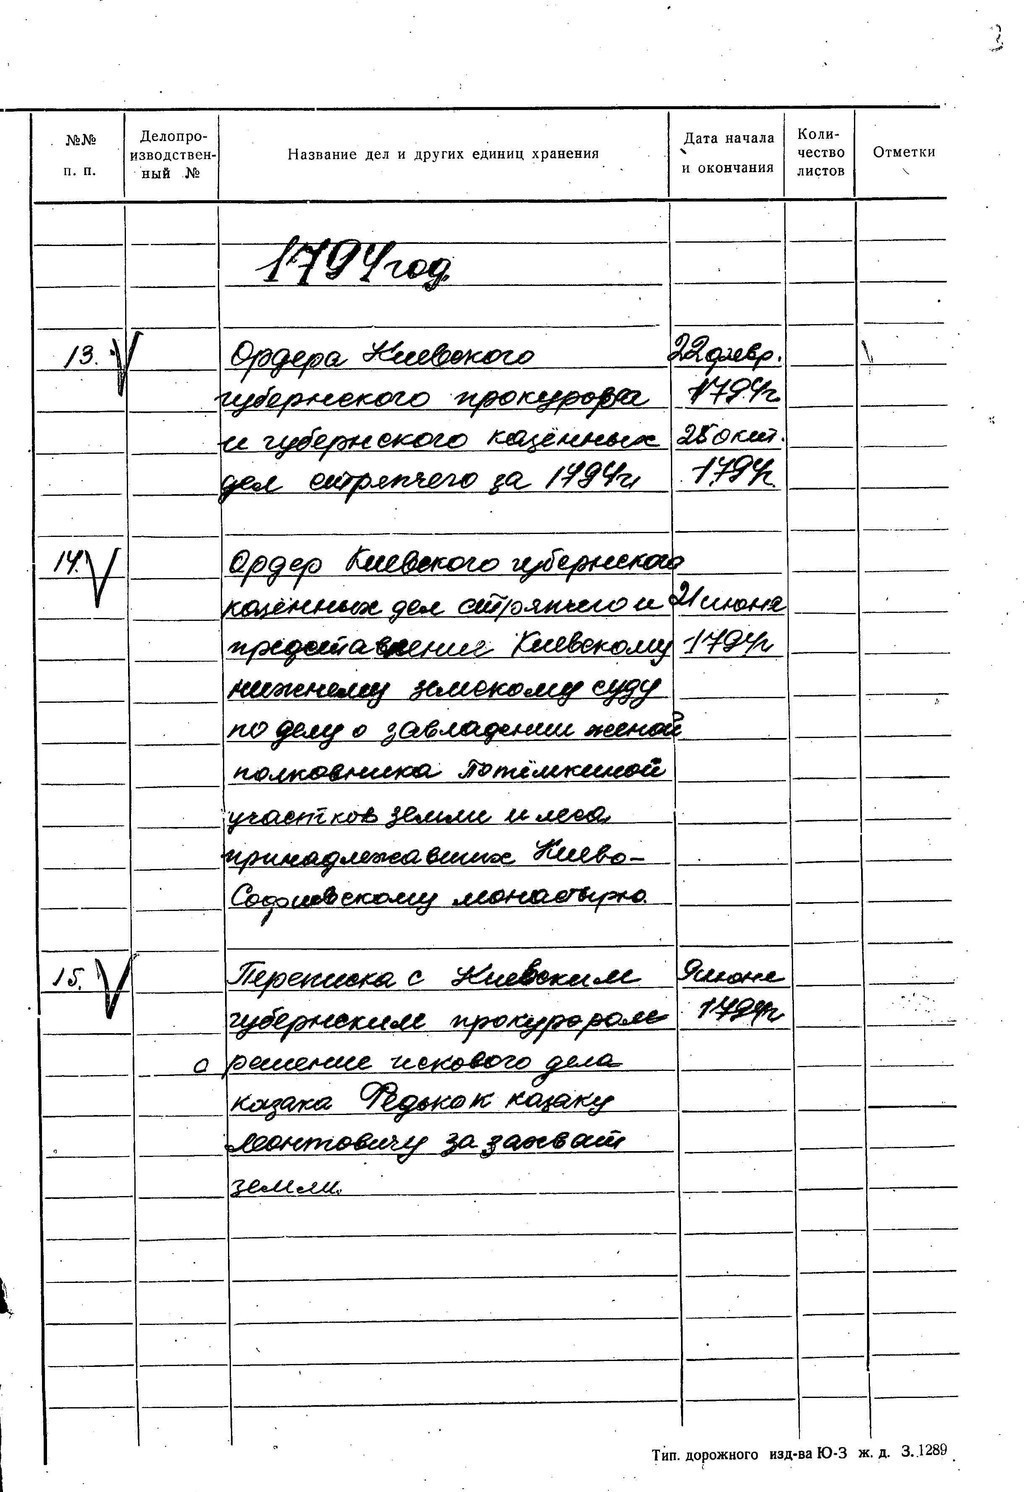 3
№№ п. п.
Делопро-
изводствен-
ный №
Название дел и других единиц хранения
Дата начала
и окончания
Коли-
чество
листов
Отметки
1794 год.
13. Ордера Киевского 22 февр.
губернского прокурора 1794г.
и губернского казённых 25 окт.
дел стряпчего за 1794г. 1794г.
14. Ордер Киевского губернского
казённых дел стряпчего и 21 июня
представление Киевскому 1794г
нижнему земскому суду
по делу о завладении женой
полковника Потёмкиной
участков земли и леса,
принадлежавших Киево-
Софиевскому монастырю.
15. Переписка с Киевским 9 июня
губернским прокурором 1794г
о решение искового дела
казака Редько к казаку
Леонтовичу за захват
земли.
Тип. дорожного изд-ва Ю-З ж. д. З. 1289